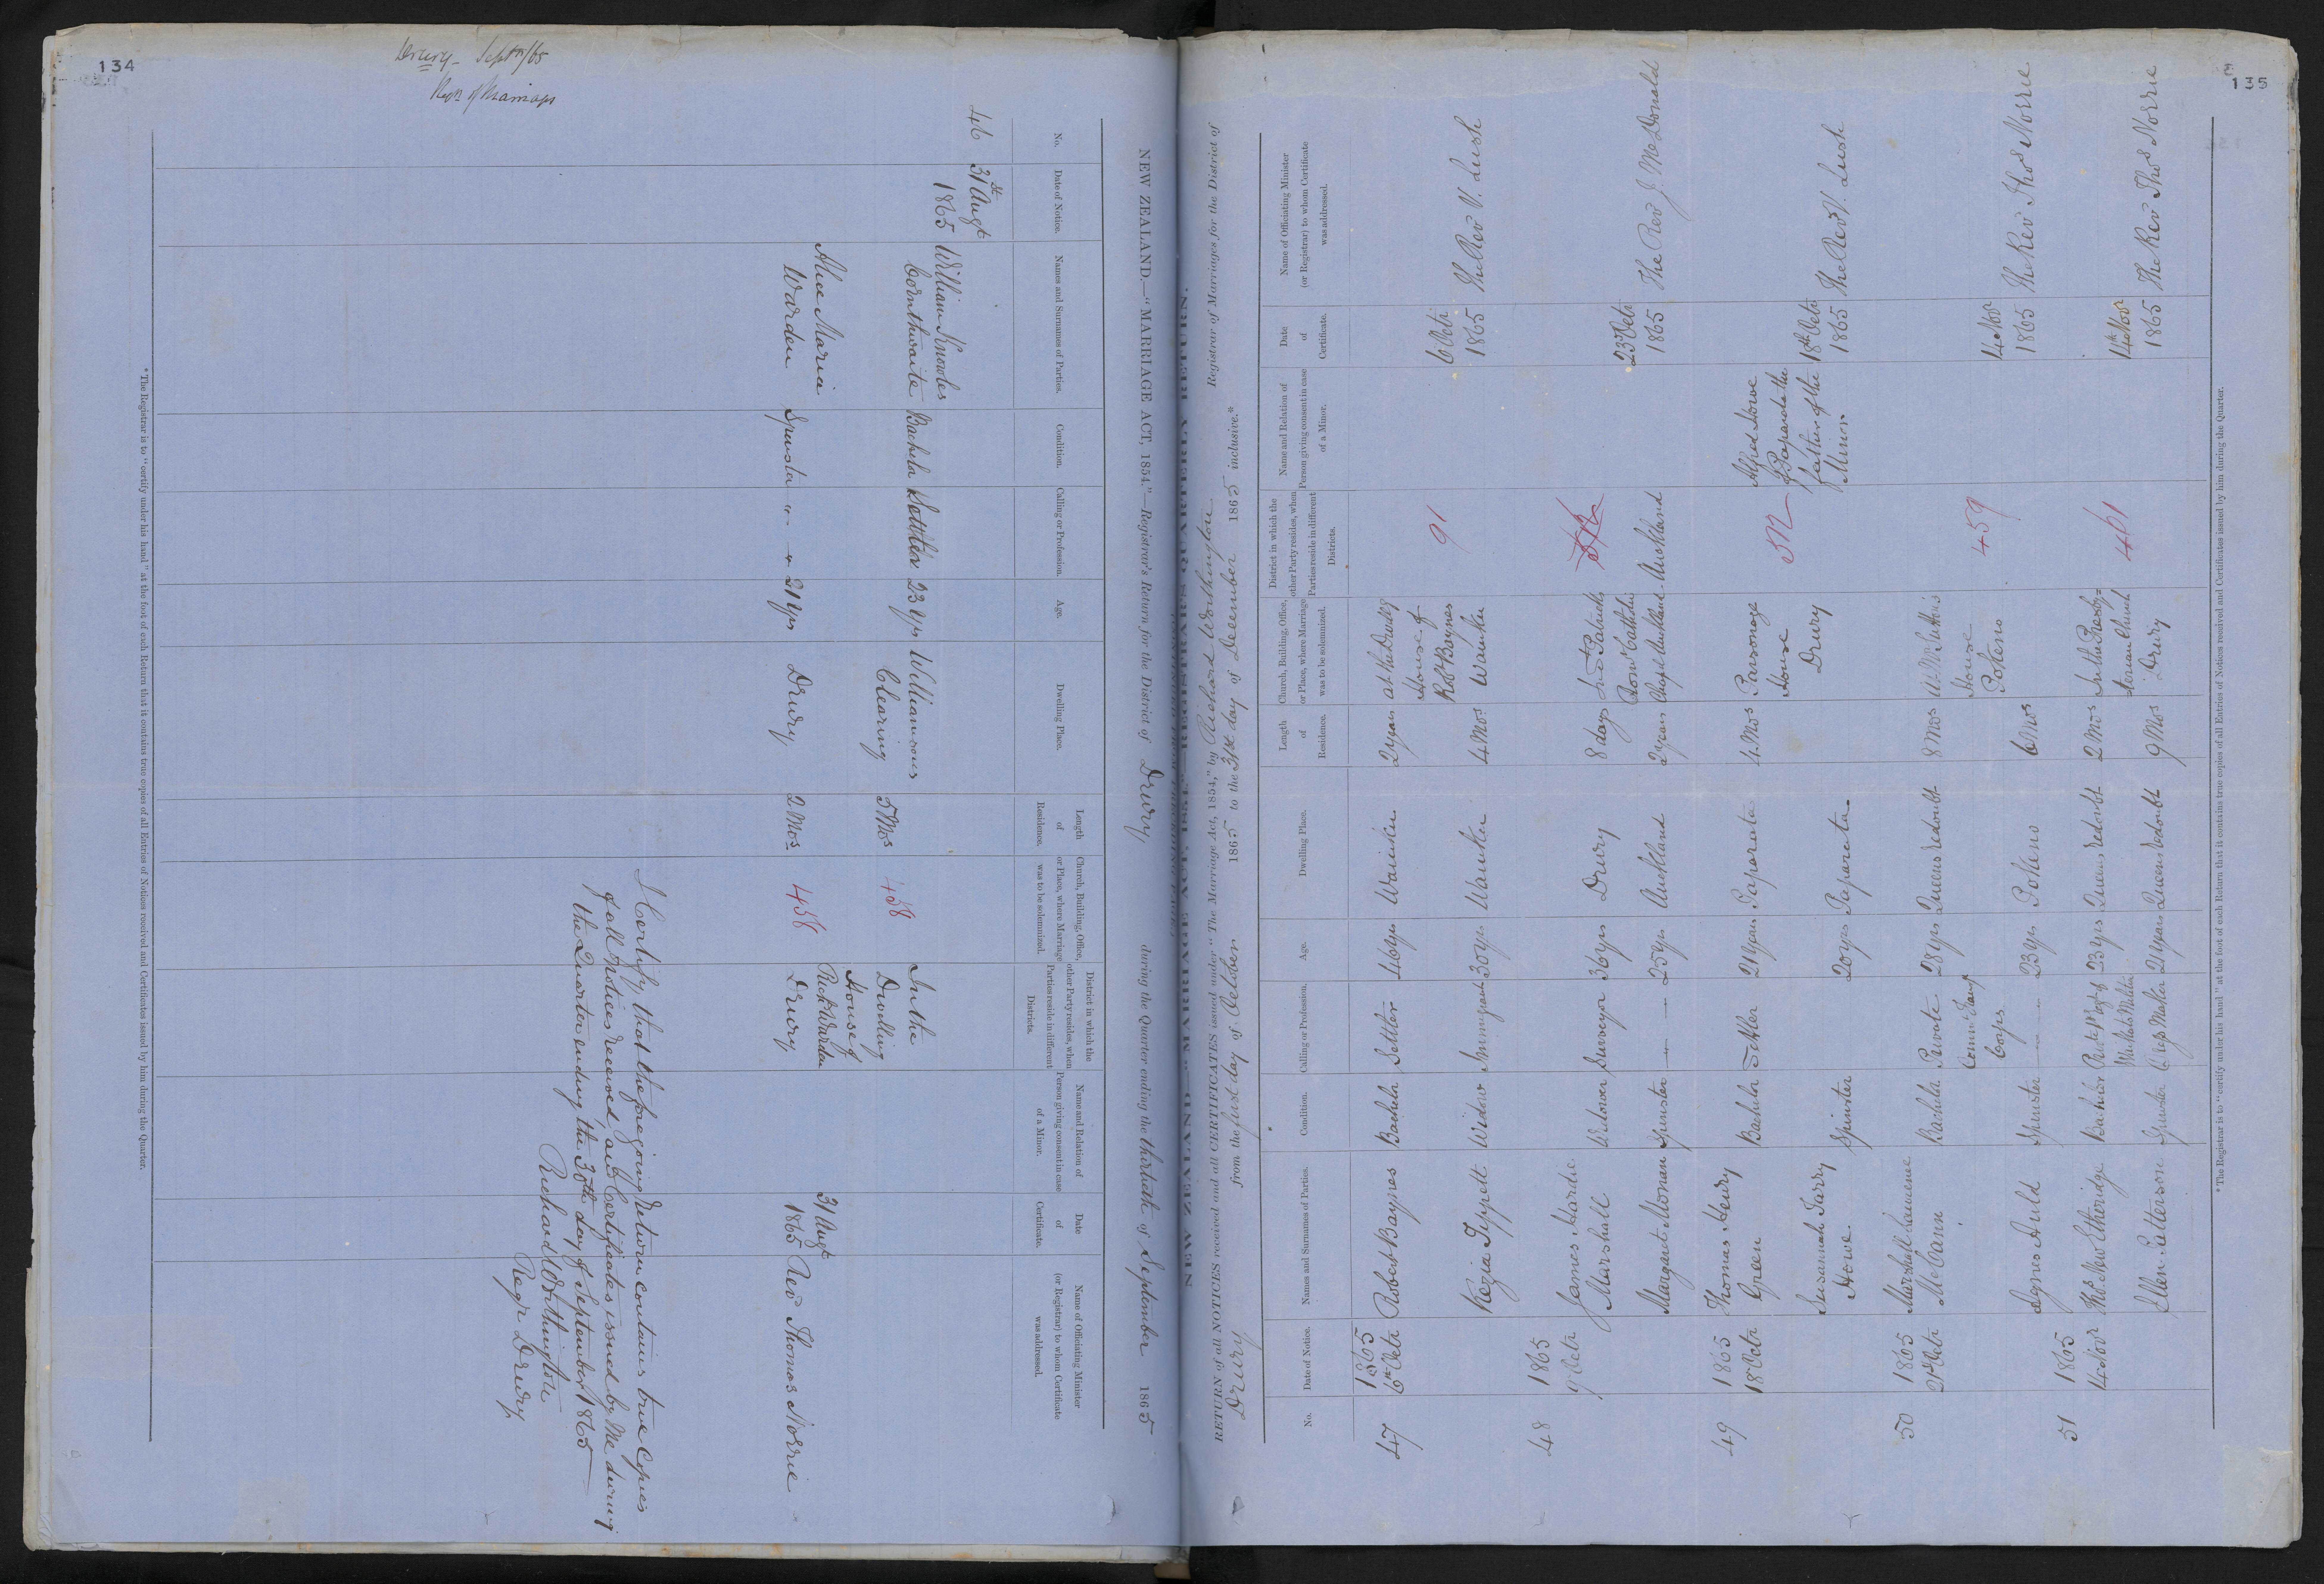 134
Drury - Septr/65
NEW ZEALAND.—"MARRIAGE ACT, 1854."—Registrar's Return for the District of Drury during the Quarter ending the thirtieth of September 1865
No.
Date of Notice.
Names and Surnames of Parties.
Condition.
Calling or Profession.
Age.
Dwelling Place.
Length
of
Residence.
Church, Building, Office,
or Place, where Marriage
was to be solemnized.
District in which the
other Party resides, when
Parties reside in different
Districts.
Name and Relation of
Person giving consent in case
of a Minor.
Date
of
Certificate.
Name of Officiating Minister
(or Registrar) to whom Certificate
was addressed.
46
31st Augt
1865
William Knowles
Cornthwaite
Bachelor
Settler
23 yrs
Williamsons
Clearing
5 Mos
458
In the
Dwelling
House of
Richd Warden
Drury
Alice Maria
Warden
Spinster
21 yrs
Drury
2 Mos
458
31 Augt
1865
Rev Thomas Norrie
I Certify that the foregoing Return contains true Copies
of all Notices received and Certificates issued by Me during
the Quarter ending the 30th day of September 1865
Richard Worthington
Regr Drury
* The Registrar is to "certify under his hand" at the foot of each Return that it contains true copies of all Entries of Notices received and Certificates issued by him during the Quarter.
135
NEW ZEALAND—"MARRIAGE ACT, 1854."—REGISTRAR'S QUARTERLY RETURN.
RETURN of all NOTICES received and all CERTIFICATES issued under "The Marriage Act, 1854," by Richard Worthington Registrar of Marriages for the District of
Drury from the first day of October 1865 to the 31st day of December 1865 inclusive.*
No.
Date of Notice.
Names and Surnames of Parties.
Condition.
Calling or Profession.
Age.
Dwelling Place.
Length
of
Residence.
Church, Building, Office,
or Place, where Marriage
was to be solemnized.
District in which the
other Party resides, when
Parties reside in different
Districts.
Name and Relation of
Person giving consent in case
of a Minor.
Date
of
Certificate.
Name of Officiating Minister
(or Registrar) to whom Certificate
was addressed.
47
1865
6th Octr
Robert Baynes
Bachelor
Settler
46 yrs
Waiuku
2 years
at the Dwelg
House of
Robt Baynes
Waiuku
91
6 Octr
1865
The Rev V. Lush
Kezia Tippett
Widow
Immigrant
30 yrs
Waiuku
4 Mos
48
1865
9 Octr
James Hardie
Marshall
Widower
Surveyor
36 yrs
Drury
8 days
In St Patricks
Roman Catholic
Chapel Auckland
Auckland
23d Octr
1865
The Rev J. McDonald
Margaret Monan
Spinster
25 yrs
Auckland
2 years
49
1865
18 Octr
Thomas Henry
Green
Bachelor
Settler
21 years
Paparata
4 Mos
Parsonage
House
Drury
Alfred Howe
Paparata the
father of the
Minor
18th Octr
1865
The Rev V. Lush
Susannah Parry
Howe
Spinster
20 yrs
Paparata
50
1865
21st Octr
Marshall Lawrence
McCann
Bachelor
Private
Corps
28 yrs
Queens redoubt
8 Mos
House
Pokeno
459
14 Nov
1865
The Rev Thos Norrie
Agnes Auld
Spinster
23 yrs
Pokeno
6 Mos
51
1865
14 Novr
Etheridge
Bachelor
23 yrs
Queens redoubt
2 Mos
In the Presby=
terian Church
Drury
461
14th Nov
1865
The Rev Thos Norrie
Ellen Patterson
Spinster
Maker
21 years
Queens redoubt
9 Mos
* The Registrar is to "certify under his hand" at the foot of each Return that it contains true copies of all Entries of Notices received and Certificates issued by him during the Quarter.